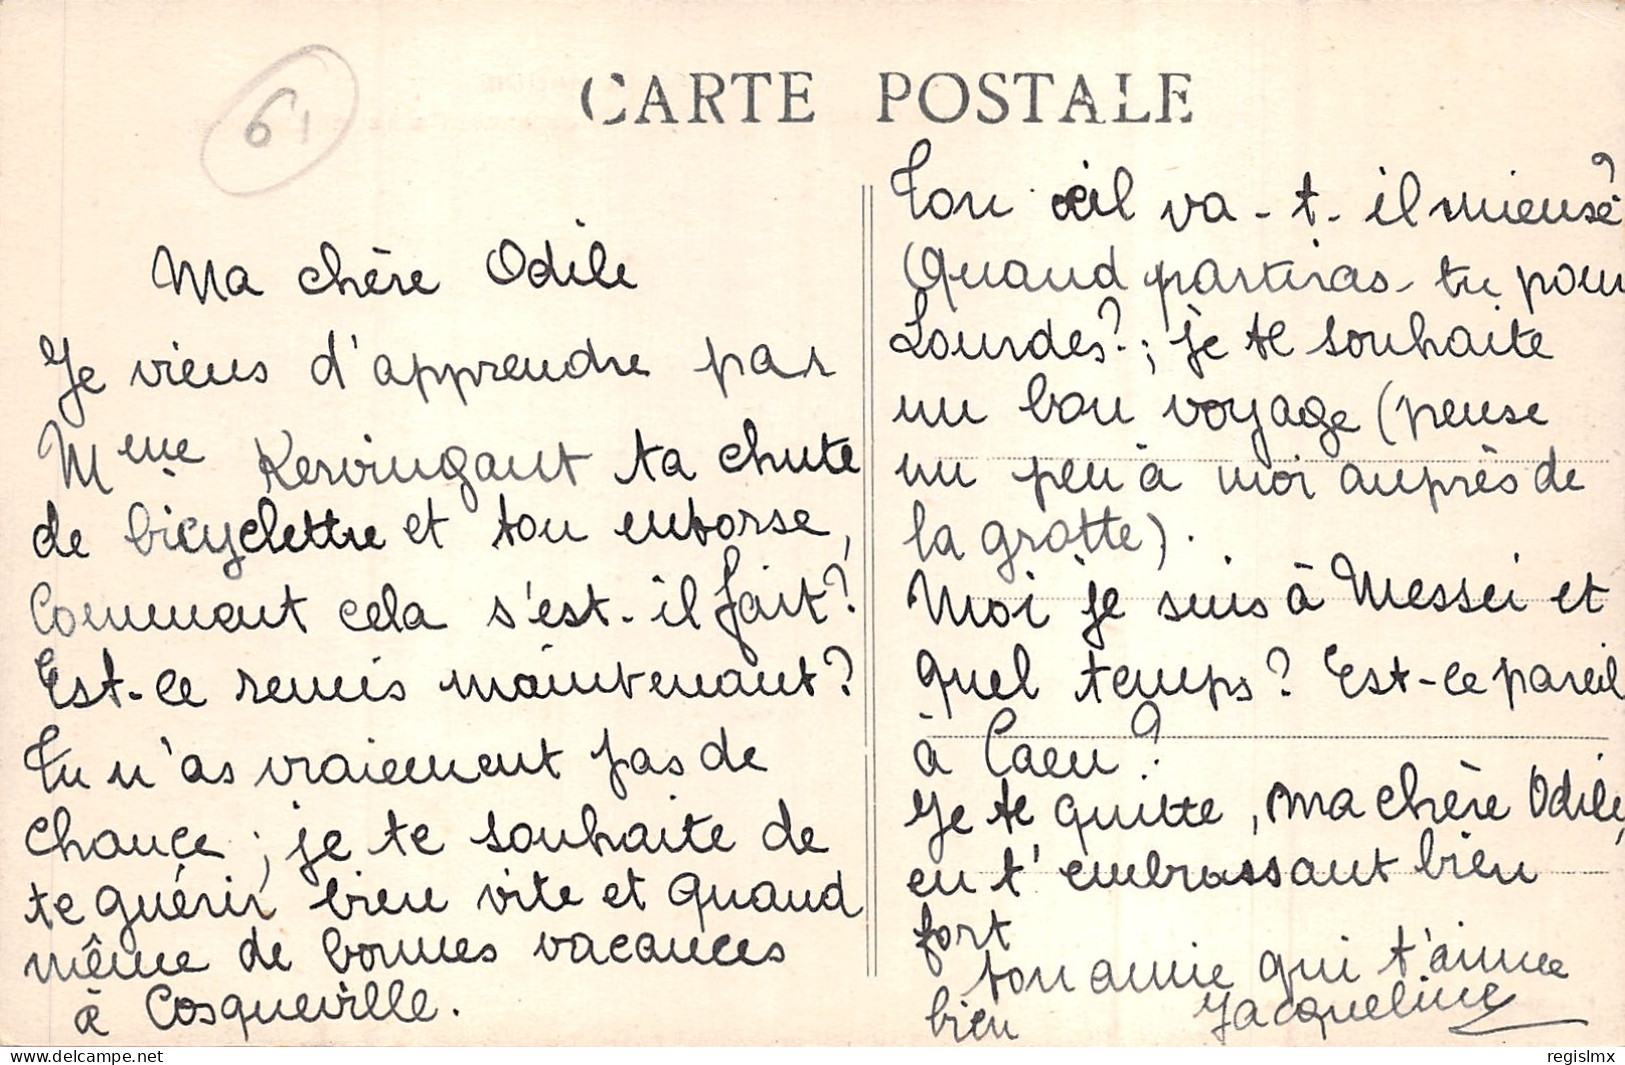 61
CARTE POSTALE
Ma chère Odile
Je viens d'apprendre par
Mme Kervingant ta chute
de bicyclettre et ton entorse,
Comment cela s'est-il fait?
Est-ce remis maintenant?
Tu n'as vraiement pas de
chance ; je te souhaite de
te guérir bien vite et quand
même de bonnes vacances
à Cosqueville.
Ton œil va-t-il mieuse?
Quand partiras-tu pour
Lourdes? ; je te souhaite
un bon voyage (pense
un peu à moi auprès de
la grotte).
Moi je suis à Messei et
quel temps? Est-ce pareil
à Caen?
Je te quitte, ma chère Odile,
en t'embrassant bien
fort
ton amie qui t'aime
bien Jacqueline
delcampe.net
regislmx